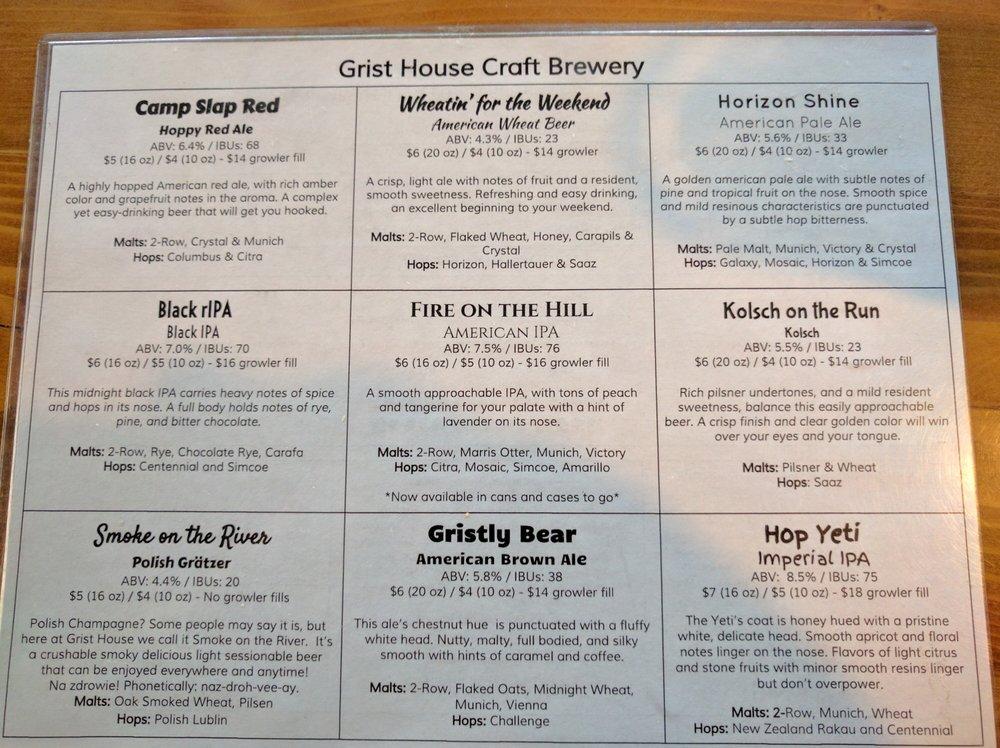 Grist House Craft Brewery
Camp Slap Red
Hoppy Red Ale
ABV: 6.4% / IBUs: 68
$5 (16 oz) / $4 (10 oz) - $14 growler fill
A highly hopped American red ale, with rich amber
color and grapefruit notes in the aroma. A complex
yet easy-drinking beer that will get you hooked.
Malts: 2-Row, Crystal & Munich
Hops: Columbus & Citra
Wheatin' for the Weekend
American Wheat Beer
ABV: 4.3% / IBUs: 23
$6 (20 oz) / $4 (10 oz) - $14 growler
A crisp, light ale with notes of fruit and a resident,
smooth sweetness. Refreshing and easy drinking,
an excellent beginning to your weekend.
Malts: 2-Row, Flaked Wheat, Honey, Carapils &
Crystal
Hops: Horizon, Hallertauer & Saaz
Horizon Shine
American Pale Ale
ABV: 5.6% / IBUs: 33
$6 (20 oz) / $4 (10 oz) - $14 growler
A golden american pale ale with subtle notes of
pine and tropical fruit on the nose. Smooth spice
and mild resinous characteristics are punctuated
by a subtle hop bitterness.
Malts: Pale Malt, Munich, Victory & Crystal
Hops: Galaxy, Mosaic, Horizon & Simcoe
Black rIPA
Black IPA
ABV: 7.0% / IBUs: 70
$6 (16 oz) / $5 (10 oz) - $16 growler fill
This midnight black IPA carries heavy notes of spice
and hops in its nose. A full body holds notes of rye,
pine, and bitter chocolate.
Malts: 2-Row, Rye, Chocolate Rye, Carafa
Hops: Centennial and Simcoe
FIRE ON THE HILL
AMERICAN IPA
ABV: 7.5% / IBUs: 76
$6 (16 oz) / $5 (10 oz) - $16 growler fill
A smooth approachable IPA, with tons of peach
and tangerine for your palate with a hint of
lavender on its nose.
Malts: 2-Row, Marris Otter, Munich, Victory
Hops: Citra, Mosaic, Simcoe, Amarillo
*Now available in cans and cases to go*
Kolsch on the Run
Kolsch
ABV: 5.5% / IBUs: 23
$6 (20 oz) / $4 (10 oz) - $14 growler fill
Rich pilsner undertones, and a mild resident
sweetness, balance this easily approachable
beer. A crisp finish and clear golden color will win
over your eyes and your tongue.
Malts: Pilsner & Wheat
Hops: Saaz
Smoke on the River
Polish Grätzer
ABV: 4.4% / IBUs: 20
$5 (16 oz) / $4 (10 oz) - No growler fills
Polish Champagne? Some people may say it is, but
here at Grist House we call it Smoke on the River. It's
a crushable smoky delicious light sessionable beer
that can be enjoyed everywhere and anytime!
Na zdrowie! Phonetically: naz-droh-vee-ay.
Malts: Oak Smoked Wheat, Pilsen
Hops: Polish Lublin
Gristly Bear
American Brown Ale
ABV: 5.8% / IBUs: 38
$6 (20 oz) / $4 (10 oz) - $14 growler fill
This ale's chestnut hue is punctuated with a fluffy
white head. Nutty, malty, full bodied, and silky
smooth with hints of caramel and coffee.
Malts: 2-Row, Flaked Oats, Midnight Wheat,
Munich, Vienna
Hops: Challenge
Hop Yeti
Imperial IPA
ABV: 8.5% / IBUs: 75
$7 (16 oz) / $5 (10 oz) - $18 growler fill
The Yeti's coat is honey hued with a pristine
white, delicate head. Smooth apricot and floral
notes linger on the nose. Flavors of light citrus
and stone fruits with minor smooth resins linger
but don't overpower.
Malts: 2-Row, Munich, Wheat
Hops: New Zealand Rakau and Centennial